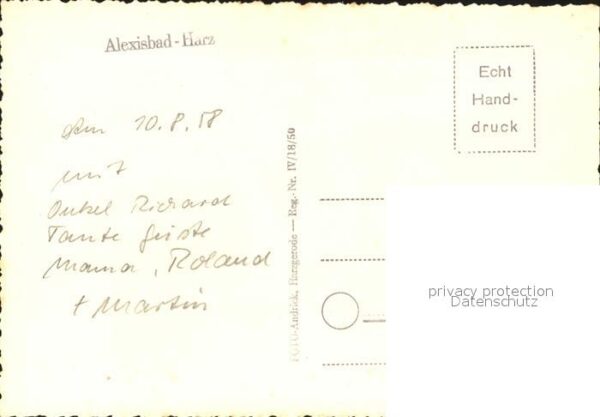 Alexisbad - Harz
Echt
Hand-
druck
am 10.8.58
mit
Onkel Richard
Tante
Mama, Roland
+ Martin
FOTO-Andrück, Harzgerode — Reg.-Nr. IV/18/50
privacy protection
Datenschutz